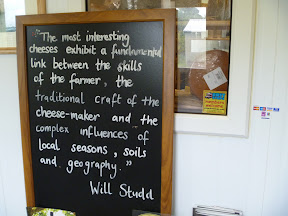 "The most interesting
cheeses exhibit a fundamental
link between the skills
of the farmer, the
traditional craft of the
cheese-maker and the
complex influences of
local seasons, soils
and geography."
Will Studd